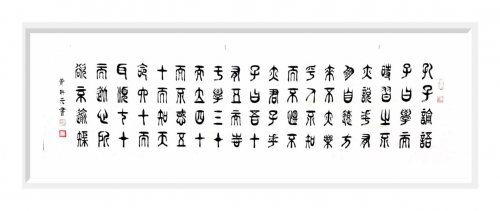 孔子論語
子曰學而
時習之不
亦說乎有
朋自遠方
來不亦樂
乎人不知
而不慍不
亦君子乎
子曰吾十
有五而志
于學三十
而立四十
而不惑五
十而知天
命六十而
耳順七十
而從心所
欲不踰矩